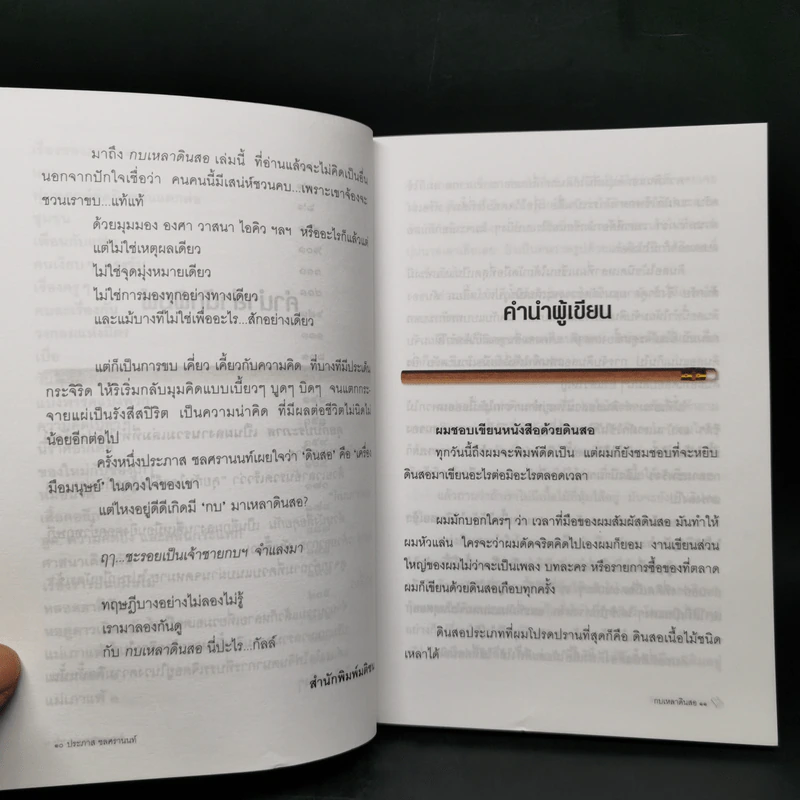 มาถึง กบเหลาดินสอ เล่มนี้ ที่อ่านแล้วจะไม่คิดเป็นอื่น
นอกจากปักใจเชื่อว่า คนคนนี้มีเสน่ห์ชวนคบ...เพราะเขาจ้องจะ
ชวนเราขบ...แท้แท้
ด้วยมุมมอง องศา วาสนา ไอคิว ฯลฯ หรืออะไรก็แล้วแต่
แต่ไม่ใช่เหตุผลเดียว
ไม่ใช่จุดมุ่งหมายเดียว
ไม่ใช่การมองทุกอย่างทางเดียว
และแม้บางทีไม่ใช่เพื่ออะไร...สักอย่างเดียว
แต่ก็เป็นการขบ เคี่ยว เคี้ยวกับความคิด ที่บางทีมีประเด็น
กระจิริด ให้ริเริ่มกลับมุมคิดแบบเบี้ยวๆ บูดๆ บิดๆ จนแตกกระ-
จายแผ่เป็นรังสีสปิริต เป็นความน่าคิด ที่มีผลต่อชีวิตไม่นิดไม่
น้อยอีกต่อไป
ครั้งหนึ่งประภาส ชลศรานนท์เผยใจว่า 'ดินสอ' คือ 'เครื่อง
มือมนุษย์' ในดวงใจของเขา
แต่ไหงอยู่ดีดีเกิดมี 'กบ' มาเหลาดินสอ?
ฤๅ...ชะรอยเป็นเจ้าชายกบฯ จำแลงมา
ทฤษฎีบางอย่างไม่ลองไม่รู้
เรามาลองกันดู
กับ กบเหลาดินสอ นี่ปะไร...กัลล์
สำนักพิมพ์มติชน
๑๐ ประภาส ชลศรานนท์
คำนำผู้เขียน
ผมชอบเขียนหนังสือด้วยดินสอ
ทุกวันนี้ถึงผมจะพิมพ์ดีดเป็น แต่ผมก็ยังชมชอบที่จะหยิบ
ดินสอมาเขียนอะไรต่อมิอะไรตลอดเวลา
ผมมักบอกใครๆ ว่า เวลาที่มือของผมสัมผัสดินสอ มันทำให้
ผมหัวแล่น ใครจะว่าผมดัดจริตคิดไปเองผมก็ยอม งานเขียนส่วน
ใหญ่ของผมไม่ว่าจะเป็นเพลง บทละคร หรือรายการซื้อของที่ตลาด
ผมก็เขียนด้วยดินสอเกือบทุกครั้ง
ดินสอประเภทที่ผมโปรดปรานที่สุดก็คือ ดินสอเนื้อไม้ชนิด
เหลาได้
กบเหลาดินสอ ๑๑